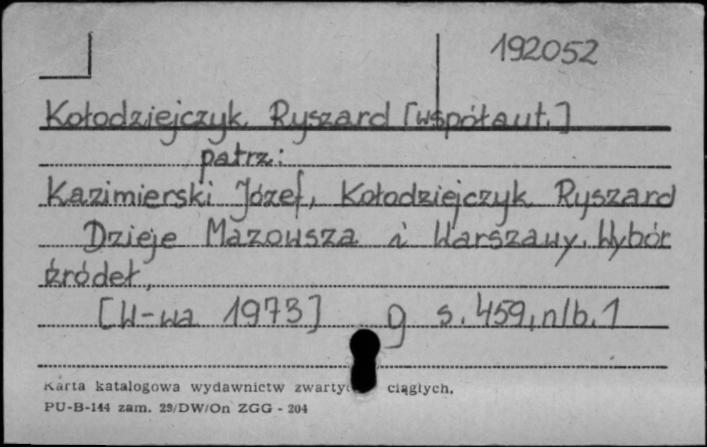 192052
Kołodziejczyk Ryszard [współaut.]
patrz:
Kazimierski Józef, Kołodziejczyk Ryszard
Dzieje Mazowsza i Warszawy. Wybór
źródeł,
[W-wa 1973] g s. 459, nlb. 1
Karta katalogowa wydawnictw ciągłych,
PU-B-144 zam. 29/DW/On ZGG - 204